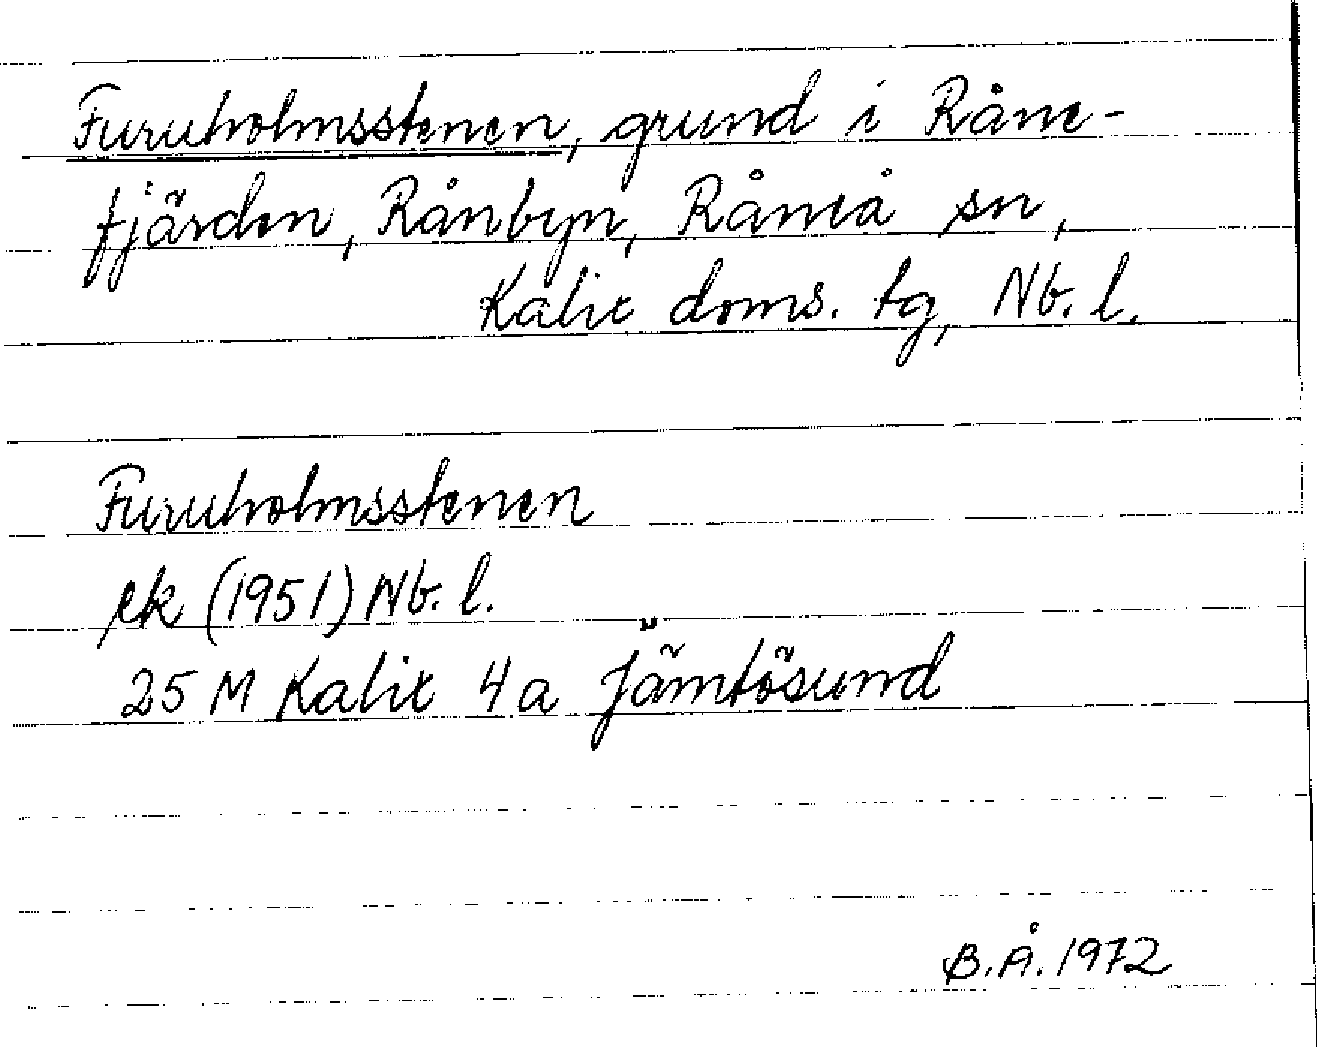 Furuholmsstenen, grund i Råne-
fjärden, Rånbyn, Råneå sn,
Kalix doms. tg, Nb. l.
Furuholmsstenen
ek (1951) Nb. l.
25 M Kalix 4a Jämtösund
B.Å. 1972